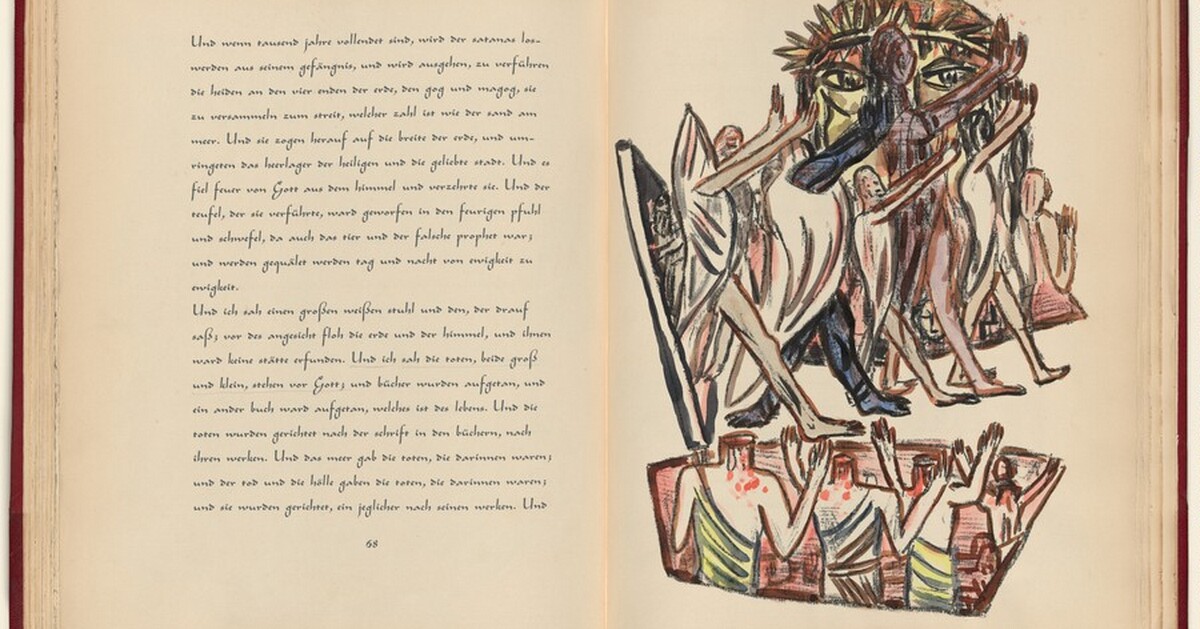 Und wenn tausend jahre vollendet sind, wird der satanas los-
werden aus seinem gefängnis, und wird ausgehen, zu verführen
die heiden an den vier enden der erde, den gog und magog, sie
zu versammeln zum streit, welcher zahl ist wie der sand am
meer. Und sie zogen herauf auf die breite der erde, und um-
ringeten das heerlager der heiligen und die geliebte stadt. Und es
fiel feuer von Gott aus dem himmel und verzehrte sie. Und der
teufel, der sie verführte, ward geworfen in den feurigen pfuhl
und schwefel, da auch das tier und der falsche prophet war;
und werden gequälet werden tag und nacht von ewigkeit zu
ewigkeit.
Und ich sah einen großen weißen stuhl und den, der drauf
saß; vor des angesicht floh die erde und der himmel, und ihnen
ward keine stätte erfunden. Und ich sah die toten, beide groß
und klein, stehen vor Gott; und bücher wurden aufgetan, und
ein ander buch ward aufgetan, welches ist des lebens. Und die
toten wurden gerichtet nach der schrift in den büchern, nach
ihren werken. Und das meer gab die toten, die darinnen waren;
und der tod und die hölle gaben die toten, die darinnen waren;
und sie wurden gerichtet, ein jeglicher nach seinen werken. Und
68